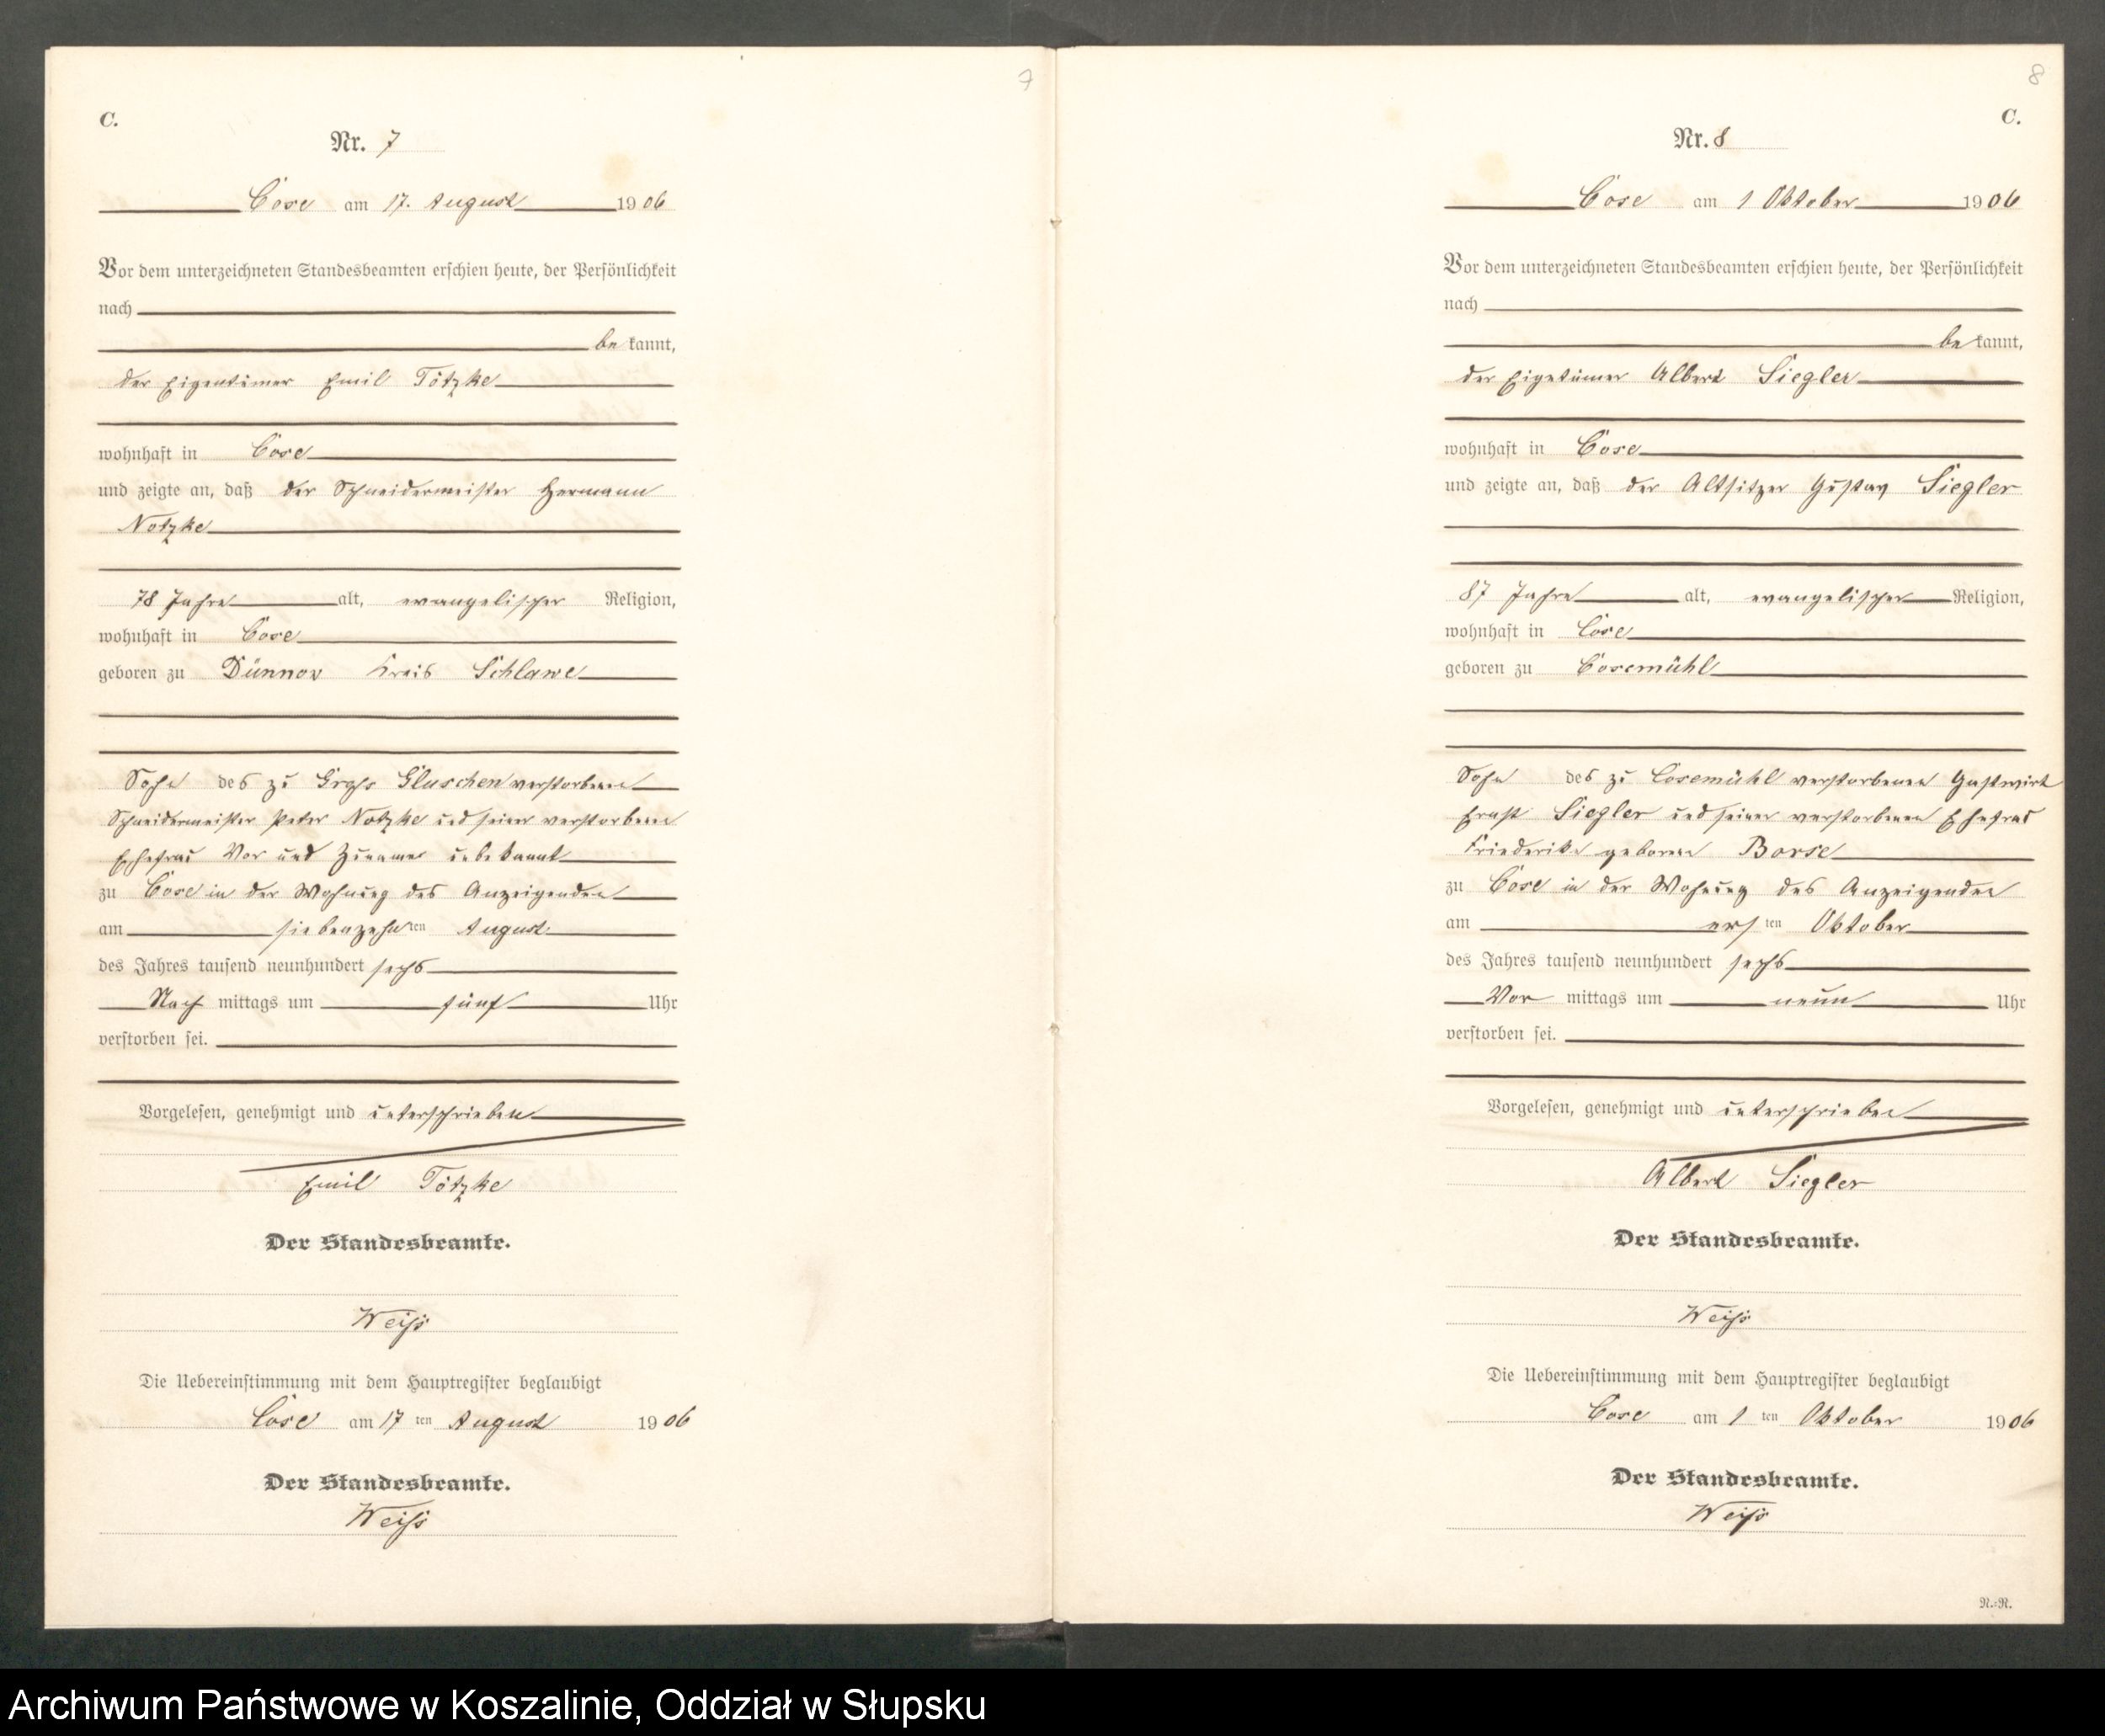 7
C.
Nr. 7
Cose am 17. August 1906
Vor dem unterzeichneten Standesbeamten erschien heute, der Persönlichkeit
nach
be kannt,
der Eigentümer Emil Tötzke
wohnhaft in Cose
und zeigte an, daß der Schneidermeister Hermann
Notzke
78 Jahre alt, evangelischer Religion,
wohnhaft in Cose
geboren zu Dünnow Kreis Schlawe
Sohn des zu Gluschen verstorbenen
Schneidermeister Peter Notzke und seiner verstorbenen
Ehefrau Vor und Zuname unbekannt
zu Cose in der Wohnung des Anzeigenden
am siebenzehnten August
des Jahres tausend neunhundert sechs
Nach mittags um fünf Uhr
verstorben sei.
Vorgelesen, genehmigt und unterschrieben
Emil Tötzke
Der Standesbeamte.
Weiß
Die Uebereinstimmung mit dem Hauptregister beglaubigt
Cose am 17 ten August 1906
Der Standesbeamte.
Weiß
8
C.
Nr. 8
Cose am 1 Oktober 1906
Vor dem unterzeichneten Standesbeamten erschien heute, der Persönlichkeit
nach
be kannt,
der Eigetümer Albert Siegler
wohnhaft in Cose
und zeigte an, daß der Altsitzer Gustav Siegler
87 Jahre alt, evangelischer Religion,
wohnhaft in Cose
geboren zu Cosemühl
Sohn des zu Cosemühl verstorbenen Gastwirt
Ernst Siegler und seiner verstorbenen Ehefrau
Friederike geborene Borse
zu Cose in der Wohnung des Anzeigenden
am ersten Oktober
des Jahres tausend neunhundert sechs
Vor mittags um neun Uhr
verstorben sei.
Vorgelesen, genehmigt und unterschrieben
Albert Siegler
Der Standesbeamte.
Weiß
Die Uebereinstimmung mit dem Hauptregister beglaubigt
Cose am 1 ten Oktober 1906
Der Standesbeamte.
Weiß
N.=N.
Archiwum Państwowe w Koszalinie, Oddział w Słupsku